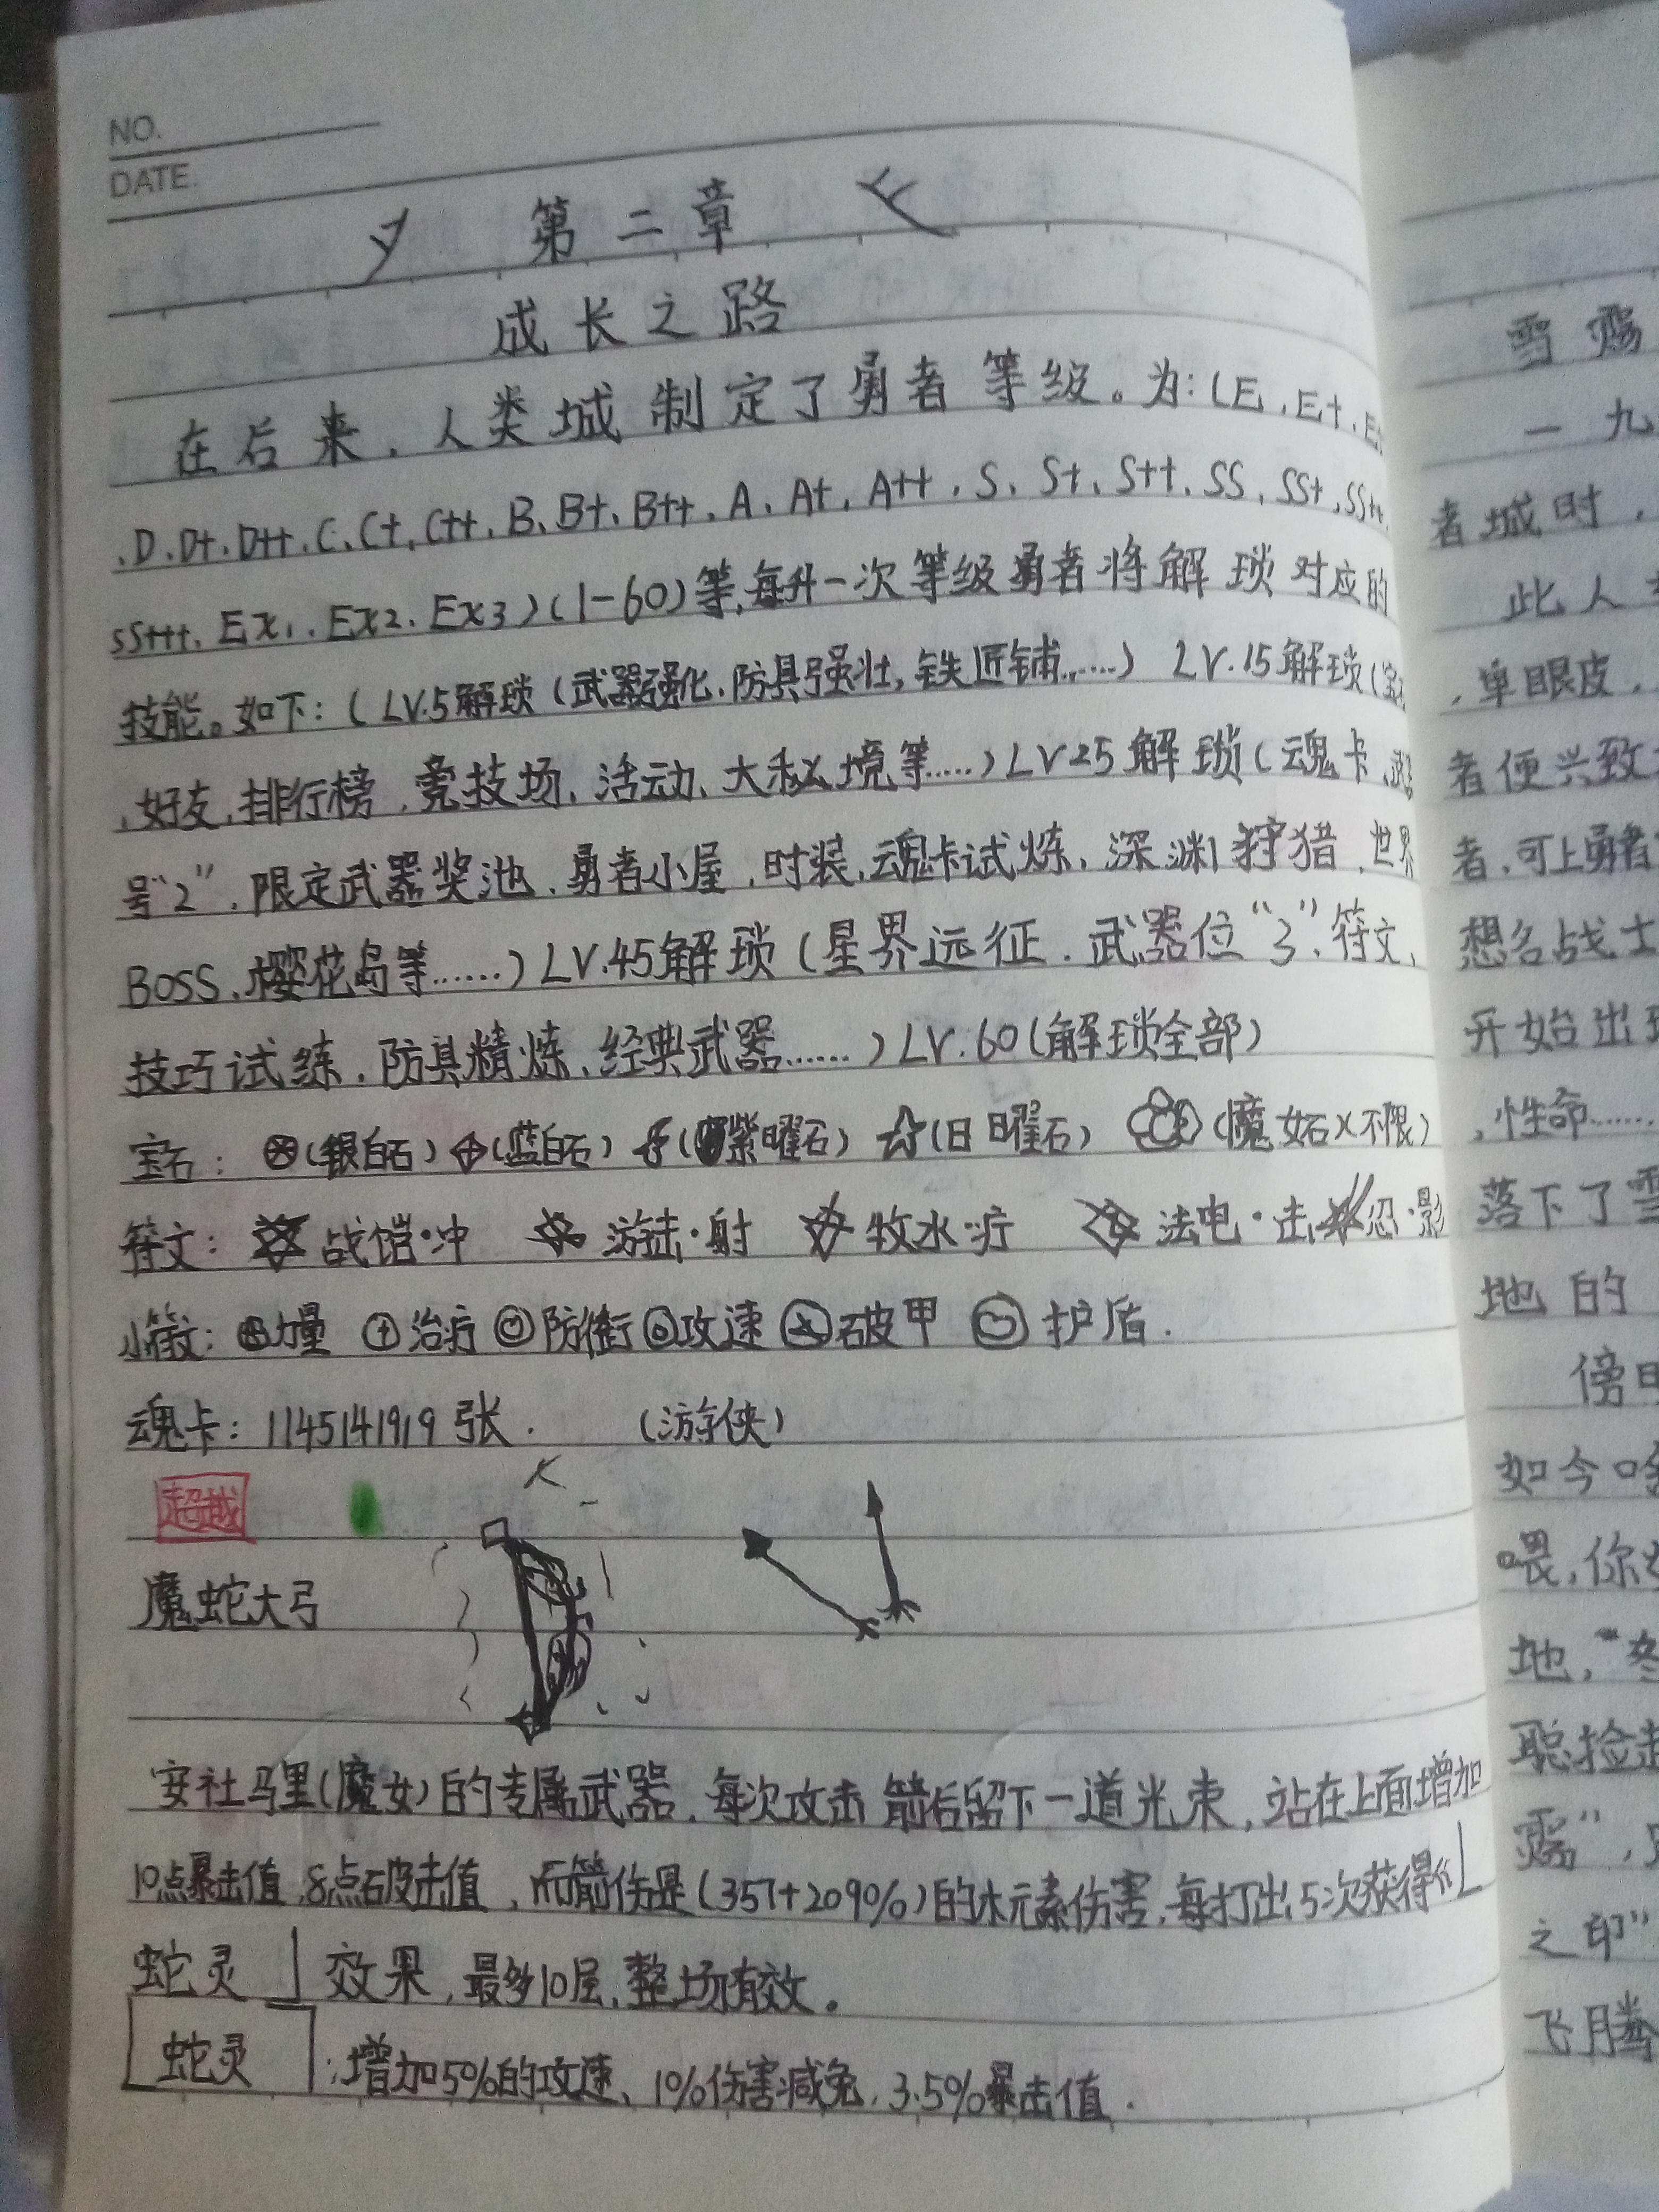 NO.
DATE.
第二章
成长之路
在后来，人类城制定了勇者等级。为：(E、E+、
、D、D+、D++、C、C+、C++、B、B+、B++、A、A+、A++、S、S+、S++、SS、SS+、SS++、
SS+++、Ex1、Ex2、Ex3)(1-60)等，每升一次等级勇者将解琐对应的
技能。如下：(LV.5解琐(武器强化、防具强壮，铁匠铺……) LV.15解琐(宝石
、好友、排行榜、竞技场、活动、大秘境等……)LV25解琐(魂卡、
号“2”、限定武器奖池、勇者小屋、时装、魂卡试炼、深渊狩猎、世界
BOSS、樱花岛等……)LV.45解琐(星界远征、武器位“3”、符文、
技巧试练、防具精炼、经典武器……)LV.60(解琐全部)
宝石： (银白石) (蓝白石) (紫曜石) (日曜石) (魔女石X不限)
符文： 战铠·冲 游击·射 牧水·疗 法电·击 忍·影
小符文： 力量 治疗 防御 攻速 破甲 护盾.
魂卡：1145141919张. (游侠)
超越
魔蛇大弓
安社马里(魔女)的专属武器，每次攻击箭后留下一道光束，站在上面增加
10点暴击值、8点破击值，而箭伤是(357+209%)的木元素伤害，每打出5次获得「
蛇灵」效果，最多10层，整场有效。
蛇灵：增加5%的攻速、1%伤害减免、3.5%暴击值.
雪
一九
者城时，
此人
，单眼皮，
者便兴致
者，可上勇者
想名战士
开始出现
，性命……
落下了雪
地的
傍
如今
喂，你
地，
聪捡起
”，
之印”
飞腾